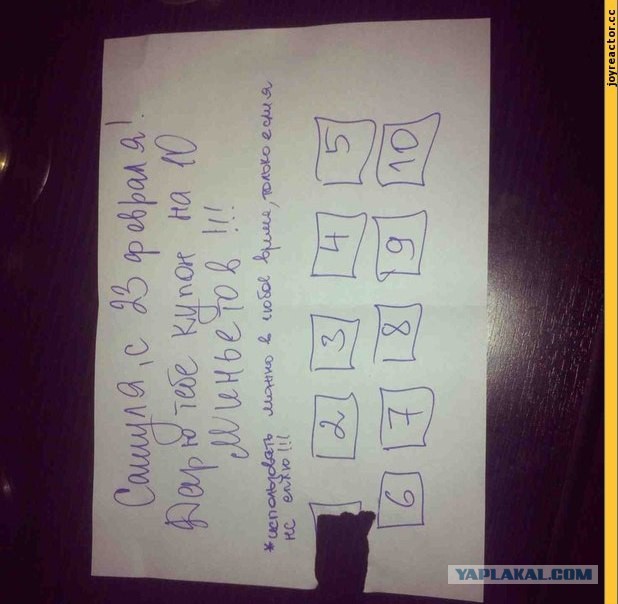 Сашуля, с 23 февраля!
Дарю тебе купон на 10
Миньетов !!!
*использовать можно в любое время, только если я
не сплю!!!
2 3 4 5
6 7 8 9 10
joyreactor.cc
YAPLAKAL.COM